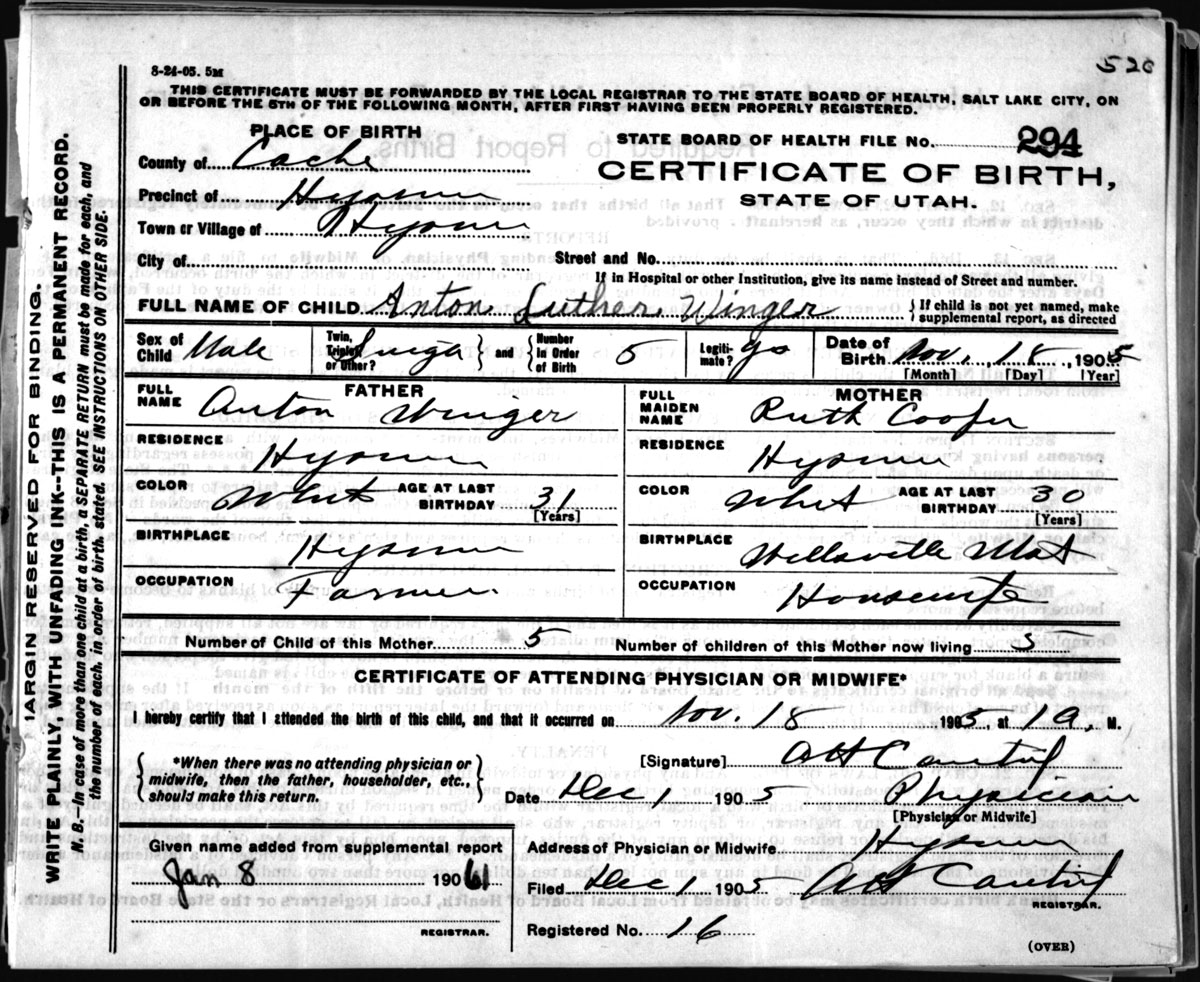 520
8-24-05. 5M
THIS CERTIFICATE MUST BE FORWARDED BY THE LOCAL REGISTRAR TO THE STATE BOARD OF HEALTH, SALT LAKE CITY, ON
OR BEFORE THE 5TH OF THE FOLLOWING MONTH, AFTER FIRST HAVING BEEN PROPERLY REGISTERED.
PLACE OF BIRTH
STATE BOARD OF HEALTH FILE No. 294
County of Cache
CERTIFICATE OF BIRTH,
Precinct of Hyrum
STATE OF UTAH.
Town or Village of Hyrum
City of
Street and No.
If in Hospital or other Institution, give its name instead of Street and number.
FULL NAME OF CHILD Anton Luther Winger
If child is not yet named, make supplemental report, as directed
Sex of Child Male
Twin, Triplet or Other?
and
Number In Order of Birth 5
Legiti- mate? yes
Date of Birth Nov. 18, 1905
[Month] [Day] [Year]
FATHER
FULL NAME Anton Winger
RESIDENCE Hyrum
COLOR White AGE AT LAST BIRTHDAY 31
[Years]
BIRTHPLACE Hyrum
OCCUPATION Farmer
MOTHER
FULL MAIDEN NAME Ruth Cooper
RESIDENCE Hyrum
COLOR White AGE AT LAST BIRTHDAY 30
[Years]
BIRTHPLACE Wellsville Utah
OCCUPATION Housewife
Number of Child of this Mother 5 Number of children of this Mother now living 5
CERTIFICATE OF ATTENDING PHYSICIAN OR MIDWIFE*
I hereby certify that I attended the birth of this child, and that it occurred on Nov. 18 1905, at 1 a, M.
*When there was no attending physician or
midwife, then the father, householder, etc.,
should make this return.
[Signature]
Date Dec 1 1905 Physician
[Physician or Midwife]
Given name added from supplemental report
Jan 8 1961
REGISTRAR.
Address of Physician or Midwife Hyrum
Filed Dec 1 1905
REGISTRAR.
Registered No. 16
(OVER)
MARGIN RESERVED FOR BINDING.
WRITE PLAINLY, WITH UNFADING INK--THIS IS A PERMANENT RECORD.
N. B.—In case of more than one child at a birth, a SEPARATE RETURN must be made for each, and
the number of each, in order of birth, stated. SEE INSTRUCTIONS ON OTHER SIDE.